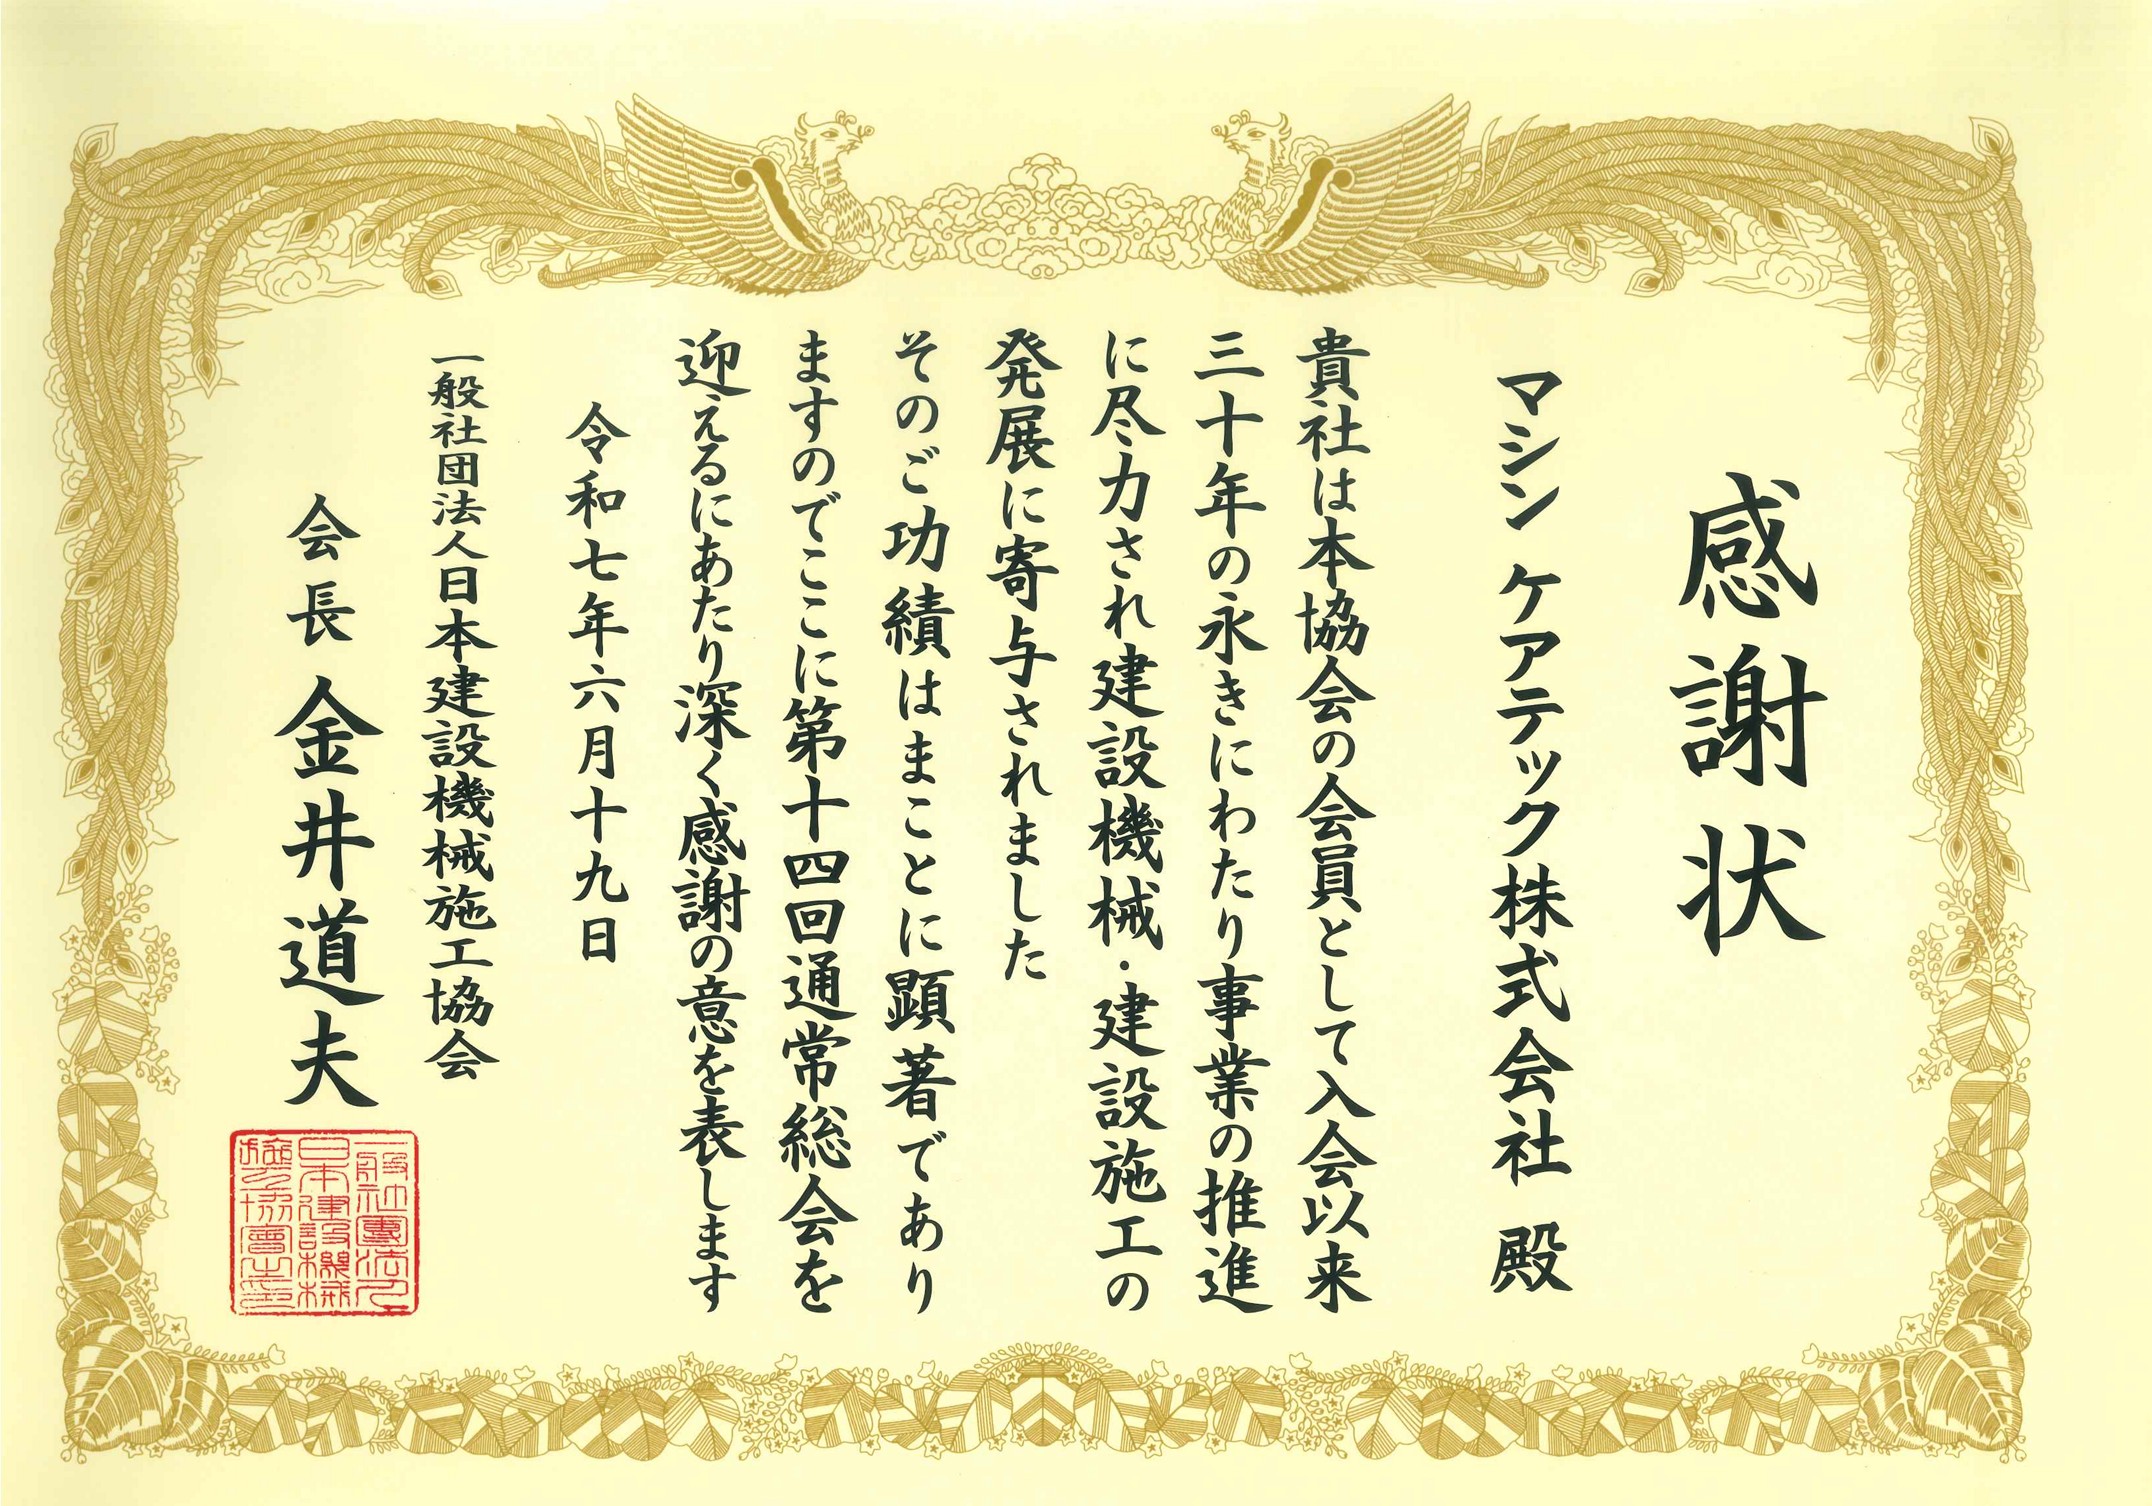 感謝状
マシン ケアテック株式会社 殿
貴社は本協会の会員として入会以来
三十年の永きにわたり事業の推進
に尽力され建設機械・建設施工の
発展に寄与されました
そのご功績はまことに顕著であり
ますのでここに第十四回通常総会を
迎えるにあたり深く感謝の意を表します
令和七年六月十九日
一般社団法人日本建設機械施工協会
会長 金井道夫
一般社團法人
日本建設機械
施工協會之印